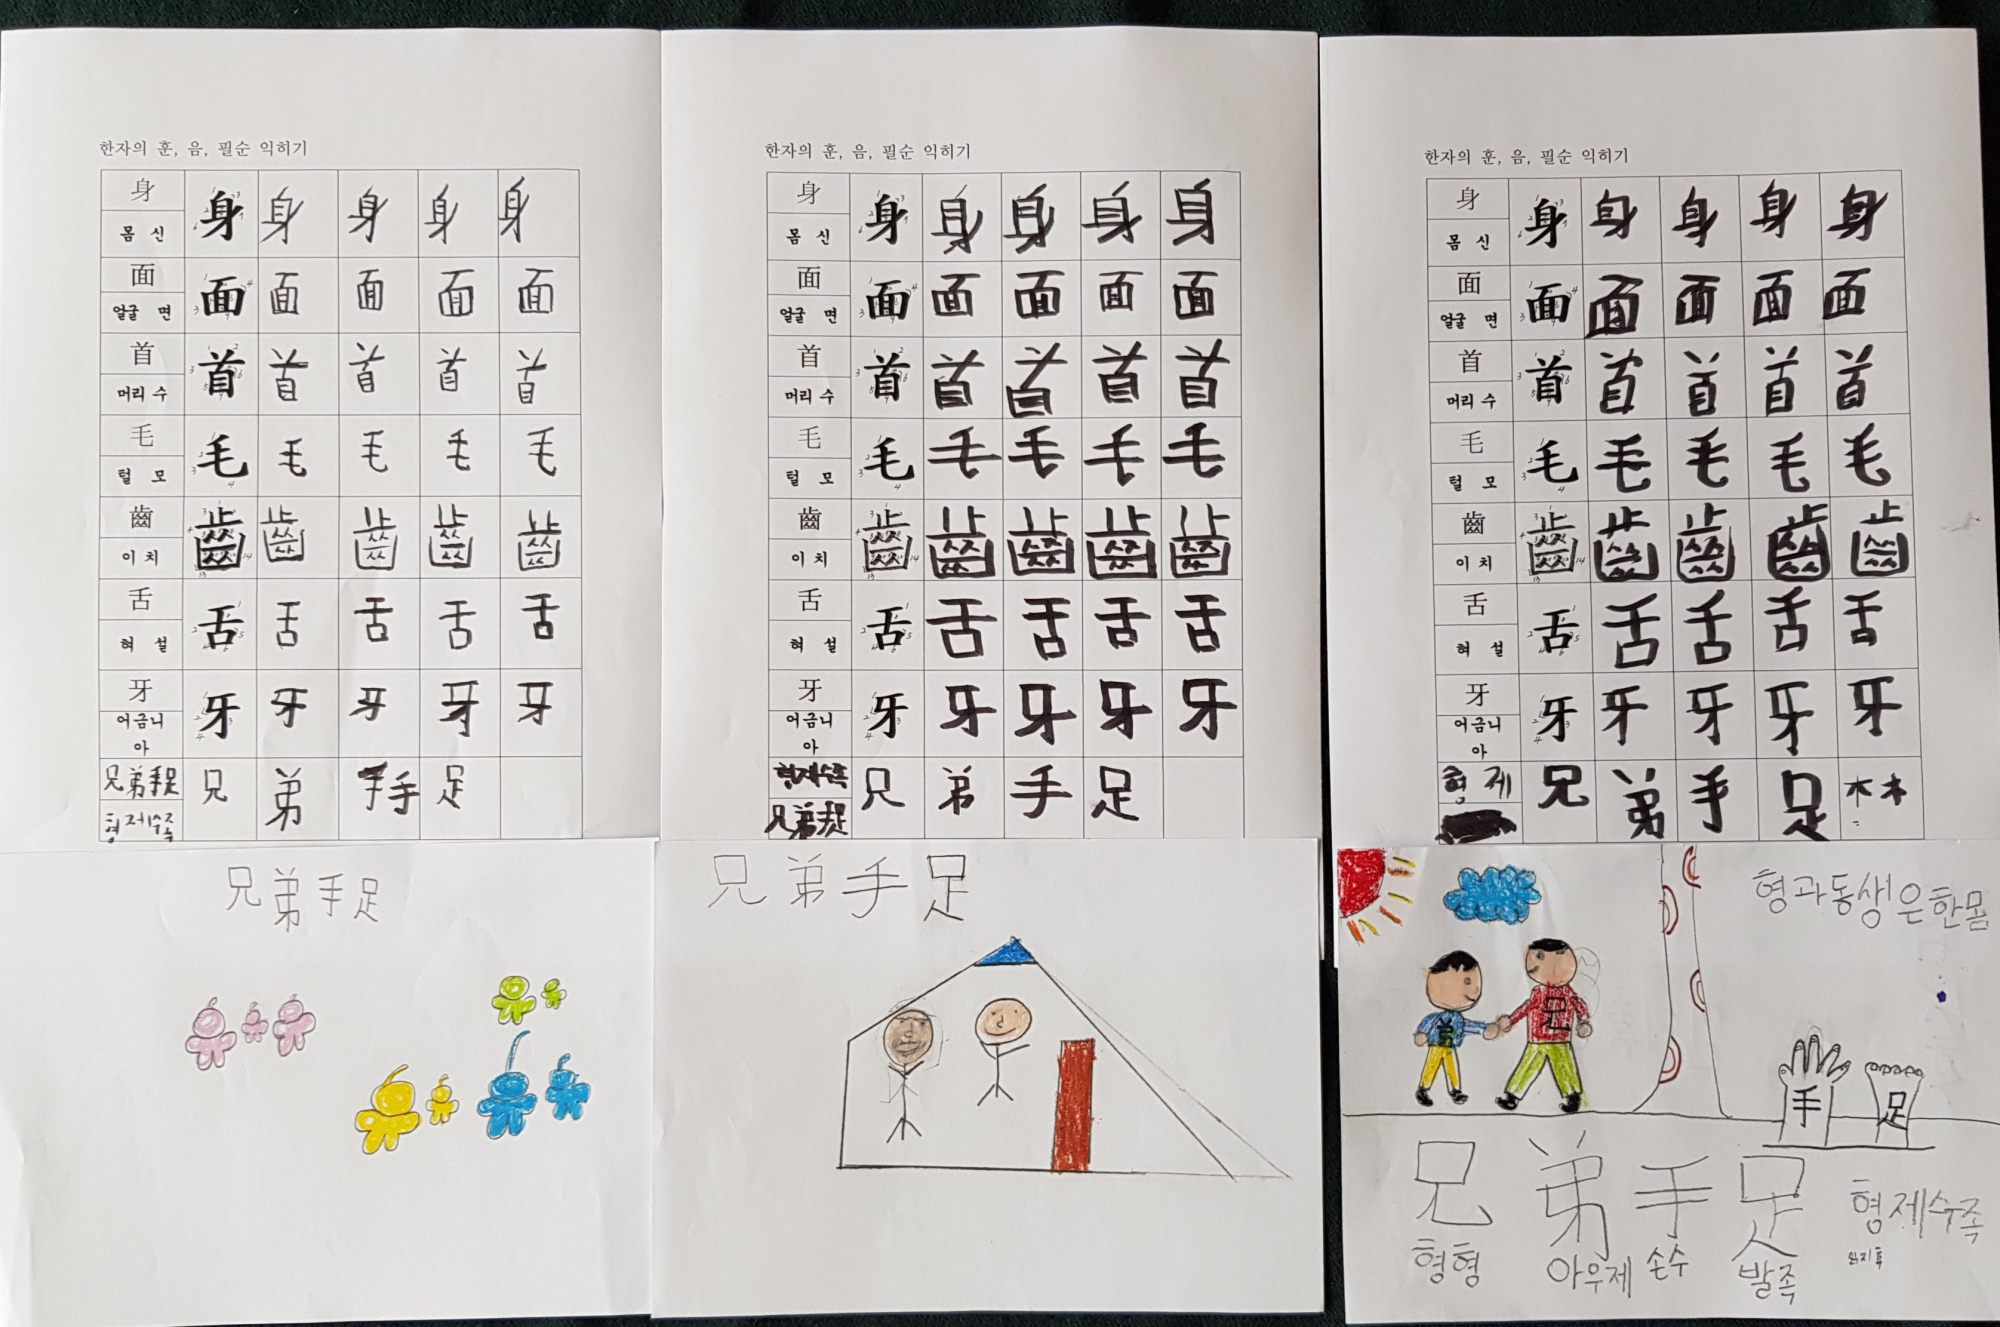 한자의 훈, 음, 필순 익히기
身 身 身 身 身 身
몸 신
面 面 面 面 面 面
얼굴 면
首 首 首 首 首 首
머리 수
毛 毛 毛 毛 毛 毛
털 모
齒 齒 齒 齒 齒 齒
이 치
舌 舌 舌 舌 舌 舌
혀 설
牙 牙 牙 牙 牙 牙
어금니
아
兄弟手足 兄 弟 手 足
형제수족
兄弟手足
한자의 훈, 음, 필순 익히기
身 身 身 身 身 身
몸 신
面 面 面 面 面 面
얼굴 면
首 首 首 首 首 首
머리 수
毛 毛 毛 毛 毛 毛
털 모
齒 齒 齒 齒 齒 齒
이 치
舌 舌 舌 舌 舌 舌
혀 설
牙 牙 牙 牙 牙 牙
어금니
아
형제수족 兄 弟 手 足
兄弟手足
兄弟手足
한자의 훈, 음, 필순 익히기
身 身 身 身 身 身
몸 신
面 面 面 面 面 面
얼굴 면
首 首 首 首 首 首
머리 수
毛 毛 毛 毛 毛 毛
털 모
齒 齒 齒 齒 齒 齒
이 치
舌 舌 舌 舌 舌 舌
혀 설
牙 牙 牙 牙 牙 牙
어금니
아
형제 兄 弟 手 足
형과동생은한몸
弟 兄
手 足
兄 弟 手 足 형제수족
형형 아우제 손수 발족